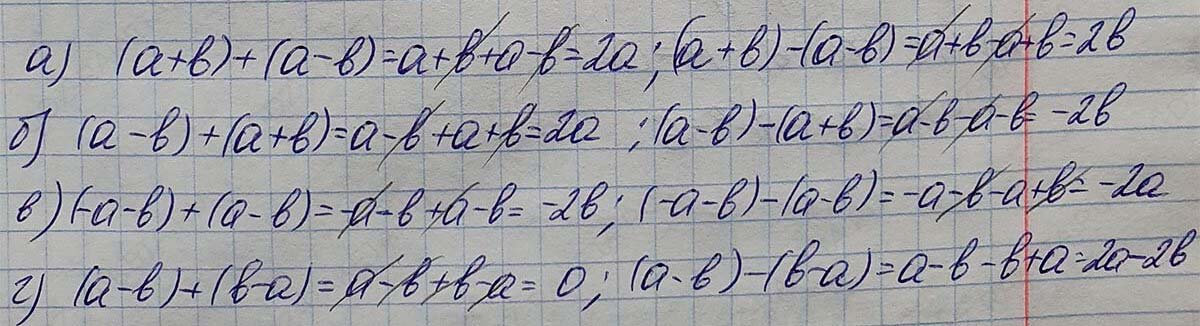 а) (a+b)+(a-b)=a+b+a-b=2a; (a+b)-(a-b)=a+b-a+b=2b
б) (a-b)+(a+b)=a-b+a+b=2a ; (a-b)-(a+b)=a-b-a-b=-2b
в) (-a-b)+(a-b)=-a-b+a-b=-2b; (-a-b)-(a-b)=-a-b-a+b=-2a
г) (a-b)+(b-a)=a-b+b-a=0; (a-b)-(b-a)=a-b-b+a=2a-2b